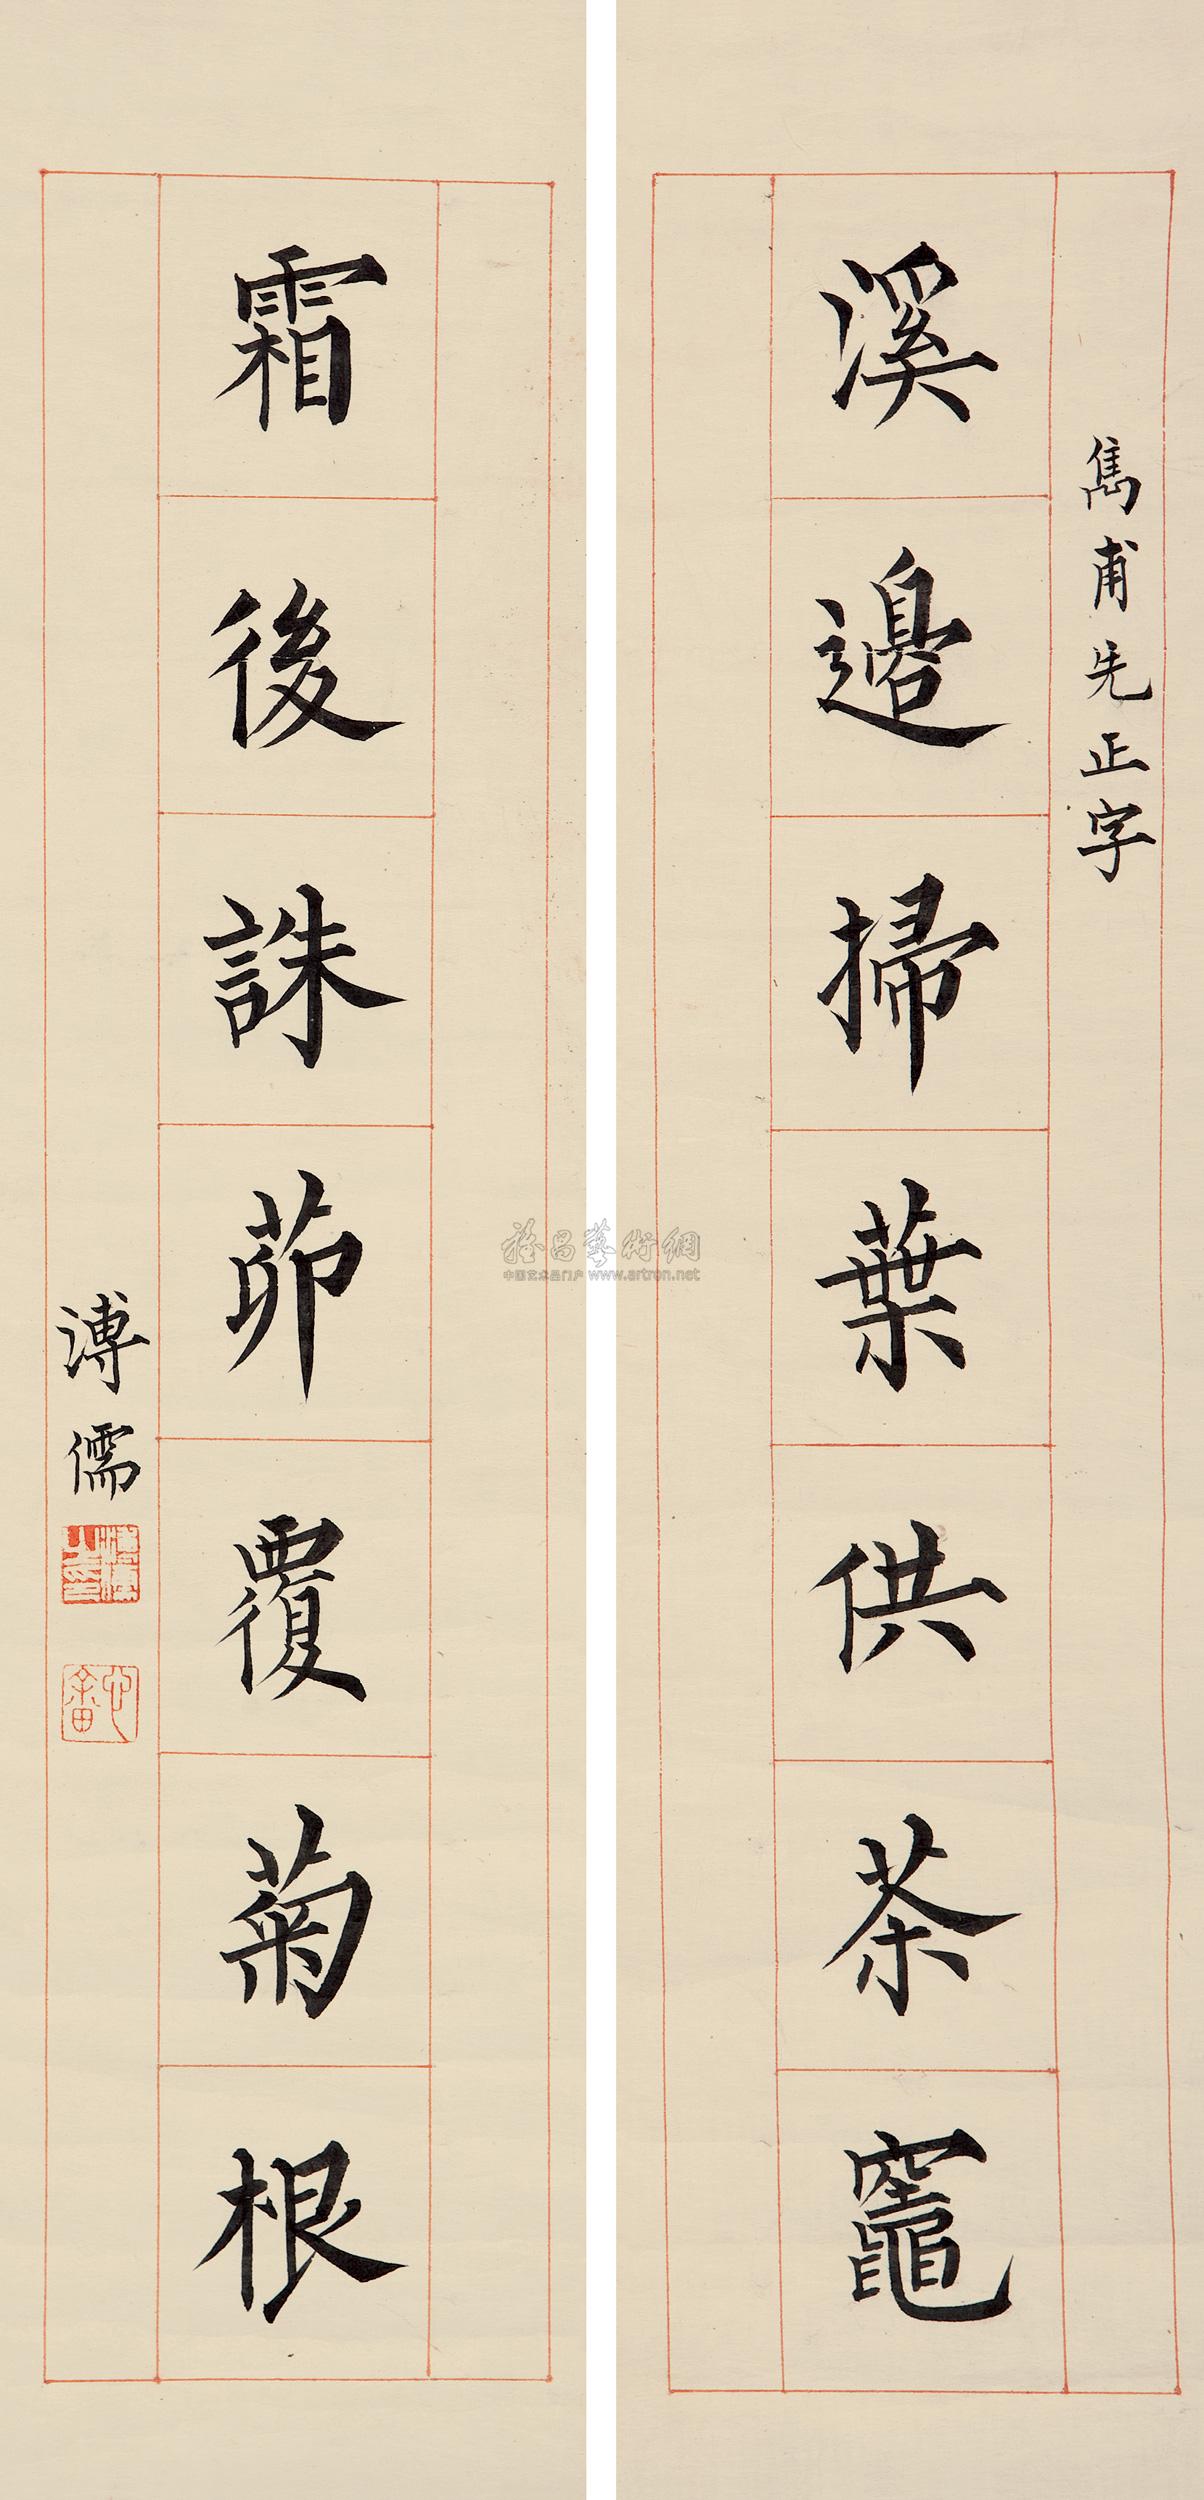 雋甫先正字
溪邊掃葉供茶竈
霜後誅茆覆菊根
溥儒
雅昌藝術網
中国艺术品门户 www.artron.net